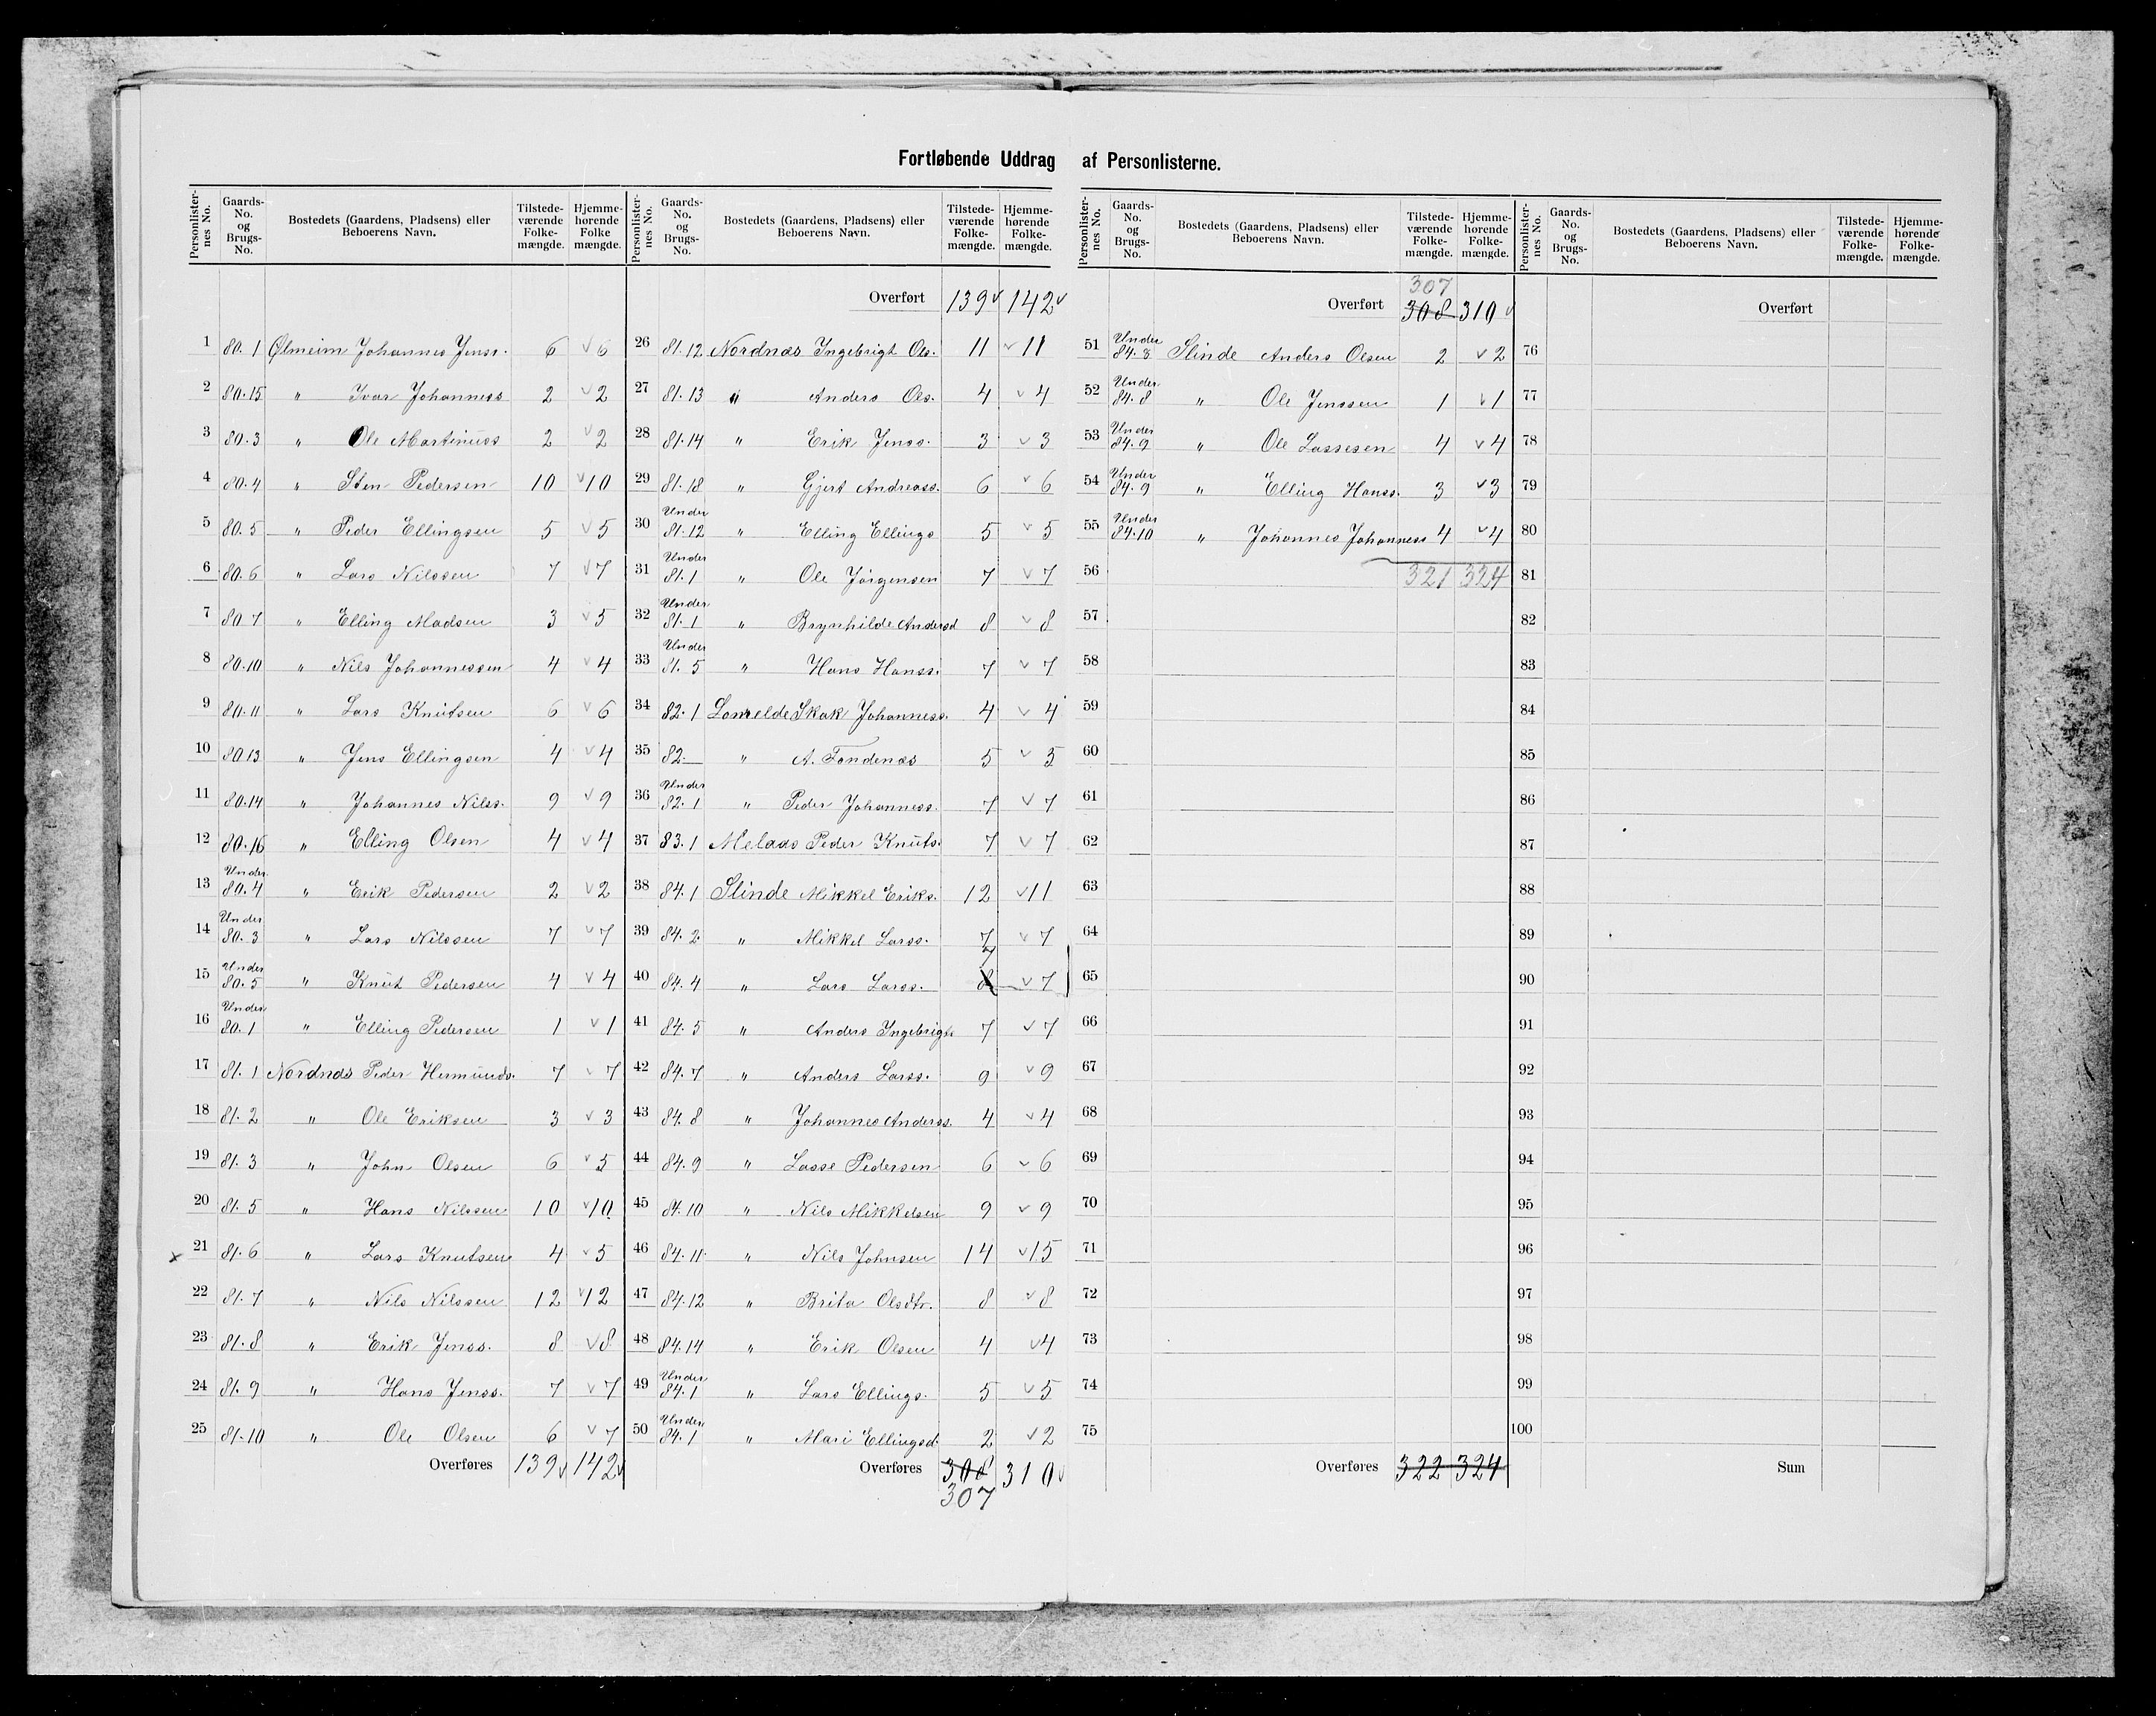 Fortløbende Uddrag af Personlisterne.
Personlister-nes No. Gaards-No. og Brugs-No. Bostedets (Gaardens, Pladsens) eller Beboerens Navn. Tilstede-værende Folke-mængde. Hjemme-hørende Folke mængde.
1 80.1 Ølmeim Johannes Jenss. 6 v 6
2 80.15 " Ivar Johanness 2 v 2
3 80.3 " Ole Martinuss 2 v 2
4 80.4 " Sten Pedersen 10 v 10
5 80.5 " Peder Ellingsen 5 v 5
6 80.6 " Lars Nilssen 7 v 7
7 80.7 " Elling Madsen 3 v 5
8 80.10 " Nils Johannessen 4 v 4
9 80.11 " Lars Knutsen 6 v 6
10 80.13 " Jens Ellingsen 4 v 4
11 80.14 " Johannes Nilss. 9 v 9
12 80.16 " Elling Olsen 4 v 4
13 Under 80.4 " Erik Pedersen 2 v 2
14 Under 80.3 " Lars Nilssen 7 v 7
15 Under 80.5 " Knut Pedersen 4 v 4
16 Under 80.1 " Elling Pedersen 1 v 1
17 81.1 Nordnæs Peder Hermunds. 7 v 7
18 81.2 " Ole Eriksen 3 v 3
19 81.3 " John Olsen 6 v 5
20 81.5 " Hans Nilssen 10 v 10
x 21 81.6 " Lars Knutsen 4 v 5
22 81.7 " Nils Nilssen 12 v 12
23 81.8 " Erik Jenss. 8 v 8
24 81.9 " Hans Jenss. 7 v 7
25 81.10 " Ole Olsen 6 v 7
Overføres 139 v 142 v
Personlister-nes No. Gaards-No. og Brugs-No. Bostedets (Gaardens, Pladsens) eller Beboerens Navn. Tilstede-værende Folke-mængde. Hjemme-hørende Folke-mængde.
Overført 139 v 142 v
26 81.12 Nordnæs Ingebrigt Ols. 11 v 11
27 81.13 " Anders Ols. 4 v 4
28 81.14 " Erik Jenss. 3 v 3
29 81.18 " Gjert Andreass. 6 v 6
30 Under 81.12 " Elling Ellings 5 v 5
31 Under 81.1 " Ole Jörgensen 7 v 7
32 Under 81.1 " Brynhilde Andersd 8 v 8
33 Under 81.5 " Hans Hanss. 7 v 7
34 82.1 Lomelde Skak Johanness. 4 v 4
35 82. " A. Tondenæs 5 v 5
36 Under 82.1 " Peder Johanness. 7 v 7
37 83.1 Melaas Peder Knuts. 7 v 7
38 84.1 Slinde Mikkel Eriks. 12 v 11
39 84.2 " Mikkel Larss. 7 v 7
40 84.4 " Lars Larss. 8 7 v 7
41 84.5 " Anders Ingebrigts 7 v 7
42 84.7 " Anders Larss. 9 v 9
43 84.8 " Johannes Anderss. 4 v 4
44 84.9 " Lasse Pedersen 6 v 6
45 84.10 " Nils Mikkelsen 9 v 9
46 84.11 " Nils Johnsen 14 v 15
47 84.12 " Brita Olsdtr. 8 v 8
48 84.14 " Erik Olsen 4 v 4
49 Under 84.1 " Lars Ellings. 5 v 5
50 Under 84.1 " Mari Ellingsd. 2 v 2
Overføres 308 310 v
307
Personlister-nes No. Gaards-No. og Brugs-No. Bostedets (Gaardens, Pladsens) eller Beboerens Navn. Tilstede-værende Folke-mængde. Hjemme-hørende Folke-mængde.
307
Overført 308 310 v
51 Under 84.8 Slinde Anders Olsen 2 v 2
52 Under 84.8 " Ole Jenssen 1 v 1
53 Under 84.9 " Ole Lassesen 4 v 4
54 Under 84.9 " Elling Hanss. 3 v 3
55 Under 84.10 " Johannes Johanness 4 v 4
56 321 324
57
58
59
60
61
62
63
64
65
66
67
68
69
70
71
72
73
74
75
Overføres 322 324
Personlister-nes No. Gaards-No. og Brugs-No. Bostedets (Gaardens, Pladsens) eller Beboerens Navn. Tilstede-værende Folke-mængde. Hjemme-hørende Folke-mængde.
Overført
76
77
78
79
80
81
82
83
84
85
86
87
88
89
90
91
92
93
94
95
96
97
98
99
100
Sum